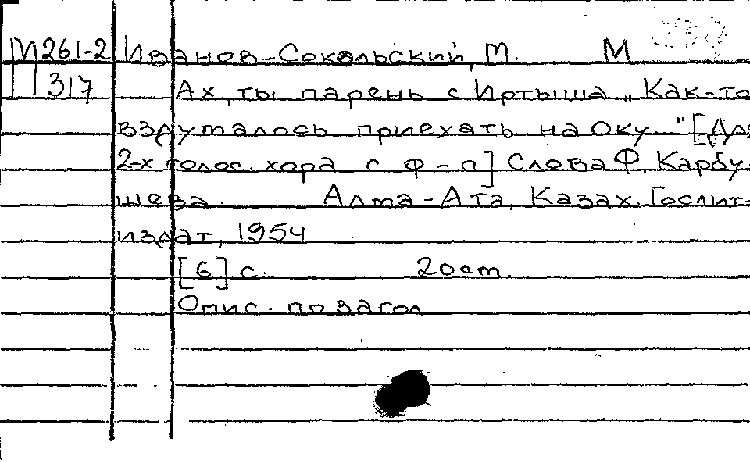 М261-2 Иванов-Сокольский, М. М
317 Ах, ты парень с Иртыша „Как-то
вздумалось приехать на Оку..." [Для
2-х голос. хора с ф-п] Слова Ф. Карбу-
шева. Алма-Ата, Казах. Гослит-
издат, 1954
[6] с. 20 см.
Опис. по загол